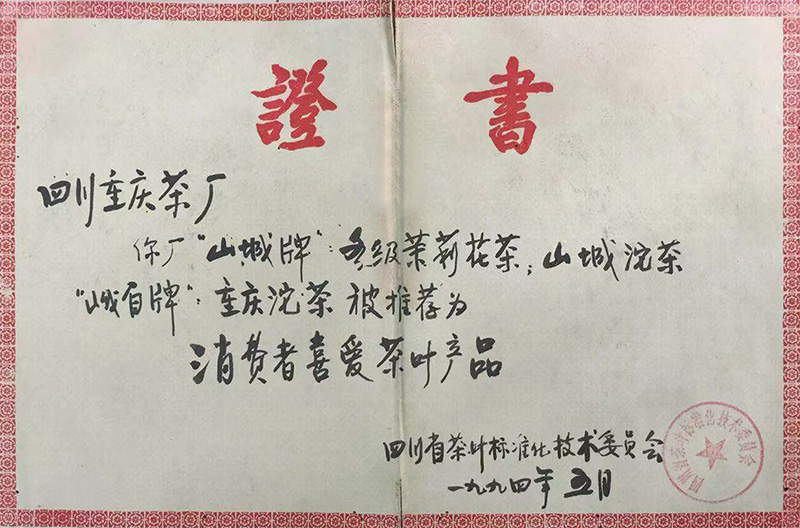 證書
四川重庆茶厂
你厂"山城牌":各级茉莉花茶;山城沱茶
"峨眉牌":重庆沱茶 被推荐为
消费者喜爱茶叶产品
四川省茶叶标准化技术委员会
一九九四年五月
四川省茶叶标准化技术委员会